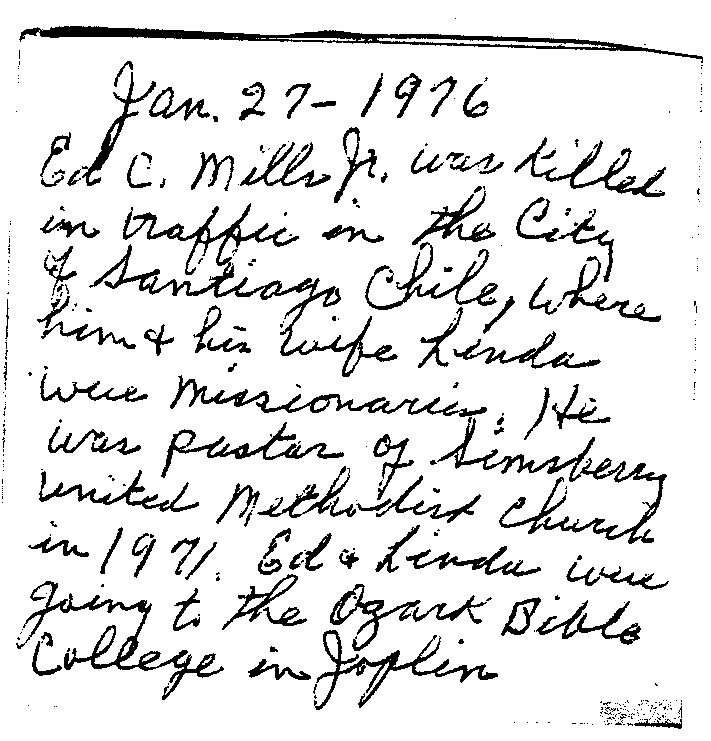 Jan. 27-1976
Ed C. Mills Jr. was killed
in traffic in the City
of Santiago Chile, where
him & his wife Linda
were missionaries. He
was pastor of Simsberry
United Methodist Church
in 1971. Ed & Linda were
going to the Ozark Bible
College in Joplin